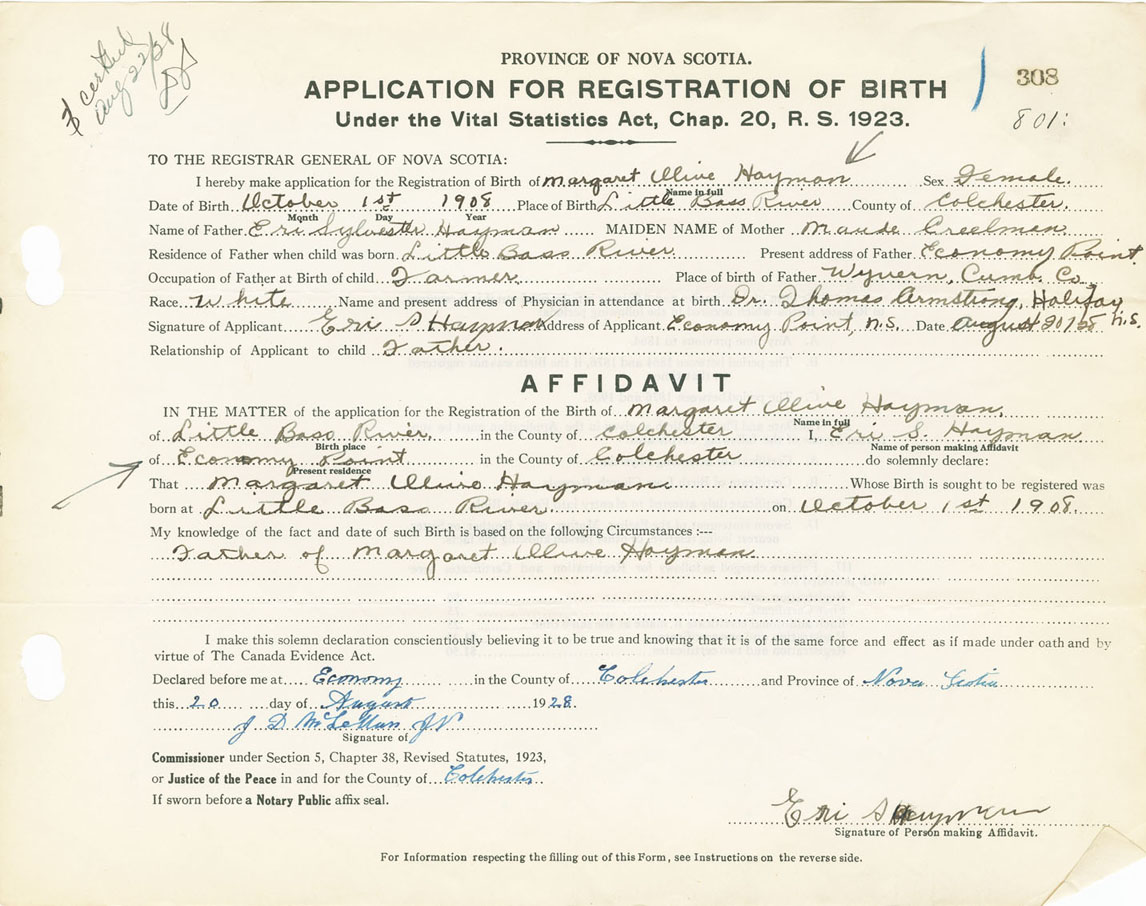 $ certified
Aug 22/28
PROVINCE OF NOVA SCOTIA.
308
APPLICATION FOR REGISTRATION OF BIRTH
801:
Under the Vital Statistics Act, Chap. 20, R. S. 1923.
TO THE REGISTRAR GENERAL OF NOVA SCOTIA:
I hereby make application for the Registration of Birth of Margaret Olive Hayman Sex Female.
Name in full
Date of Birth October 1st 1908 Place of Birth Little Bass River County of Colchester.
Month Day Year
Name of Father Eri Sylvester Hayman MAIDEN NAME of Mother Maude Creelman
Residence of Father when child was born Little Bass River Present address of Father Economy Point.
Occupation of Father at Birth of child Farmer Place of birth of Father Wyvern, Cumb. Co.
Race White Name and present address of Physician in attendance at birth Dr. Thomas Armstrong, Halifax N.S.
Signature of Applicant Eri S Hayman Address of Applicant Economy Point, N.S. Date August 20/28
Relationship of Applicant to child Father.
AFFIDAVIT
IN THE MATTER of the application for the Registration of the Birth of Margaret Olive Hayman.
Name in full
of Little Bass River. in the County of Colchester I, Eri S. Hayman
Birth place Name of person making Affidavit
of Economy Point in the County of Colchester do solemnly declare:
Present residence
That Margaret Olive Hayman Whose Birth is sought to be registered was
born at Little Bass River on October 1st 1908.
My knowledge of the fact and date of such Birth is based on the following Circumstances :---
Father of Margaret Olive Hayman
I make this solemn declaration conscientiously believing it to be true and knowing that it is of the same force and effect as if made under oath and by
virtue of The Canada Evidence Act.
Declared before me at Economy in the County of Colchester and Province of Nova Scotia
this 20 day of August 1928.
J D McLellan JP
Signature of
Commissioner under Section 5, Chapter 38, Revised Statutes, 1923,
or Justice of the Peace in and for the County of Colchester
If sworn before a Notary Public affix seal.
Eri S Hayman
Signature of Person making Affidavit.
For Information respecting the filling out of this Form, see Instructions on the reverse side.